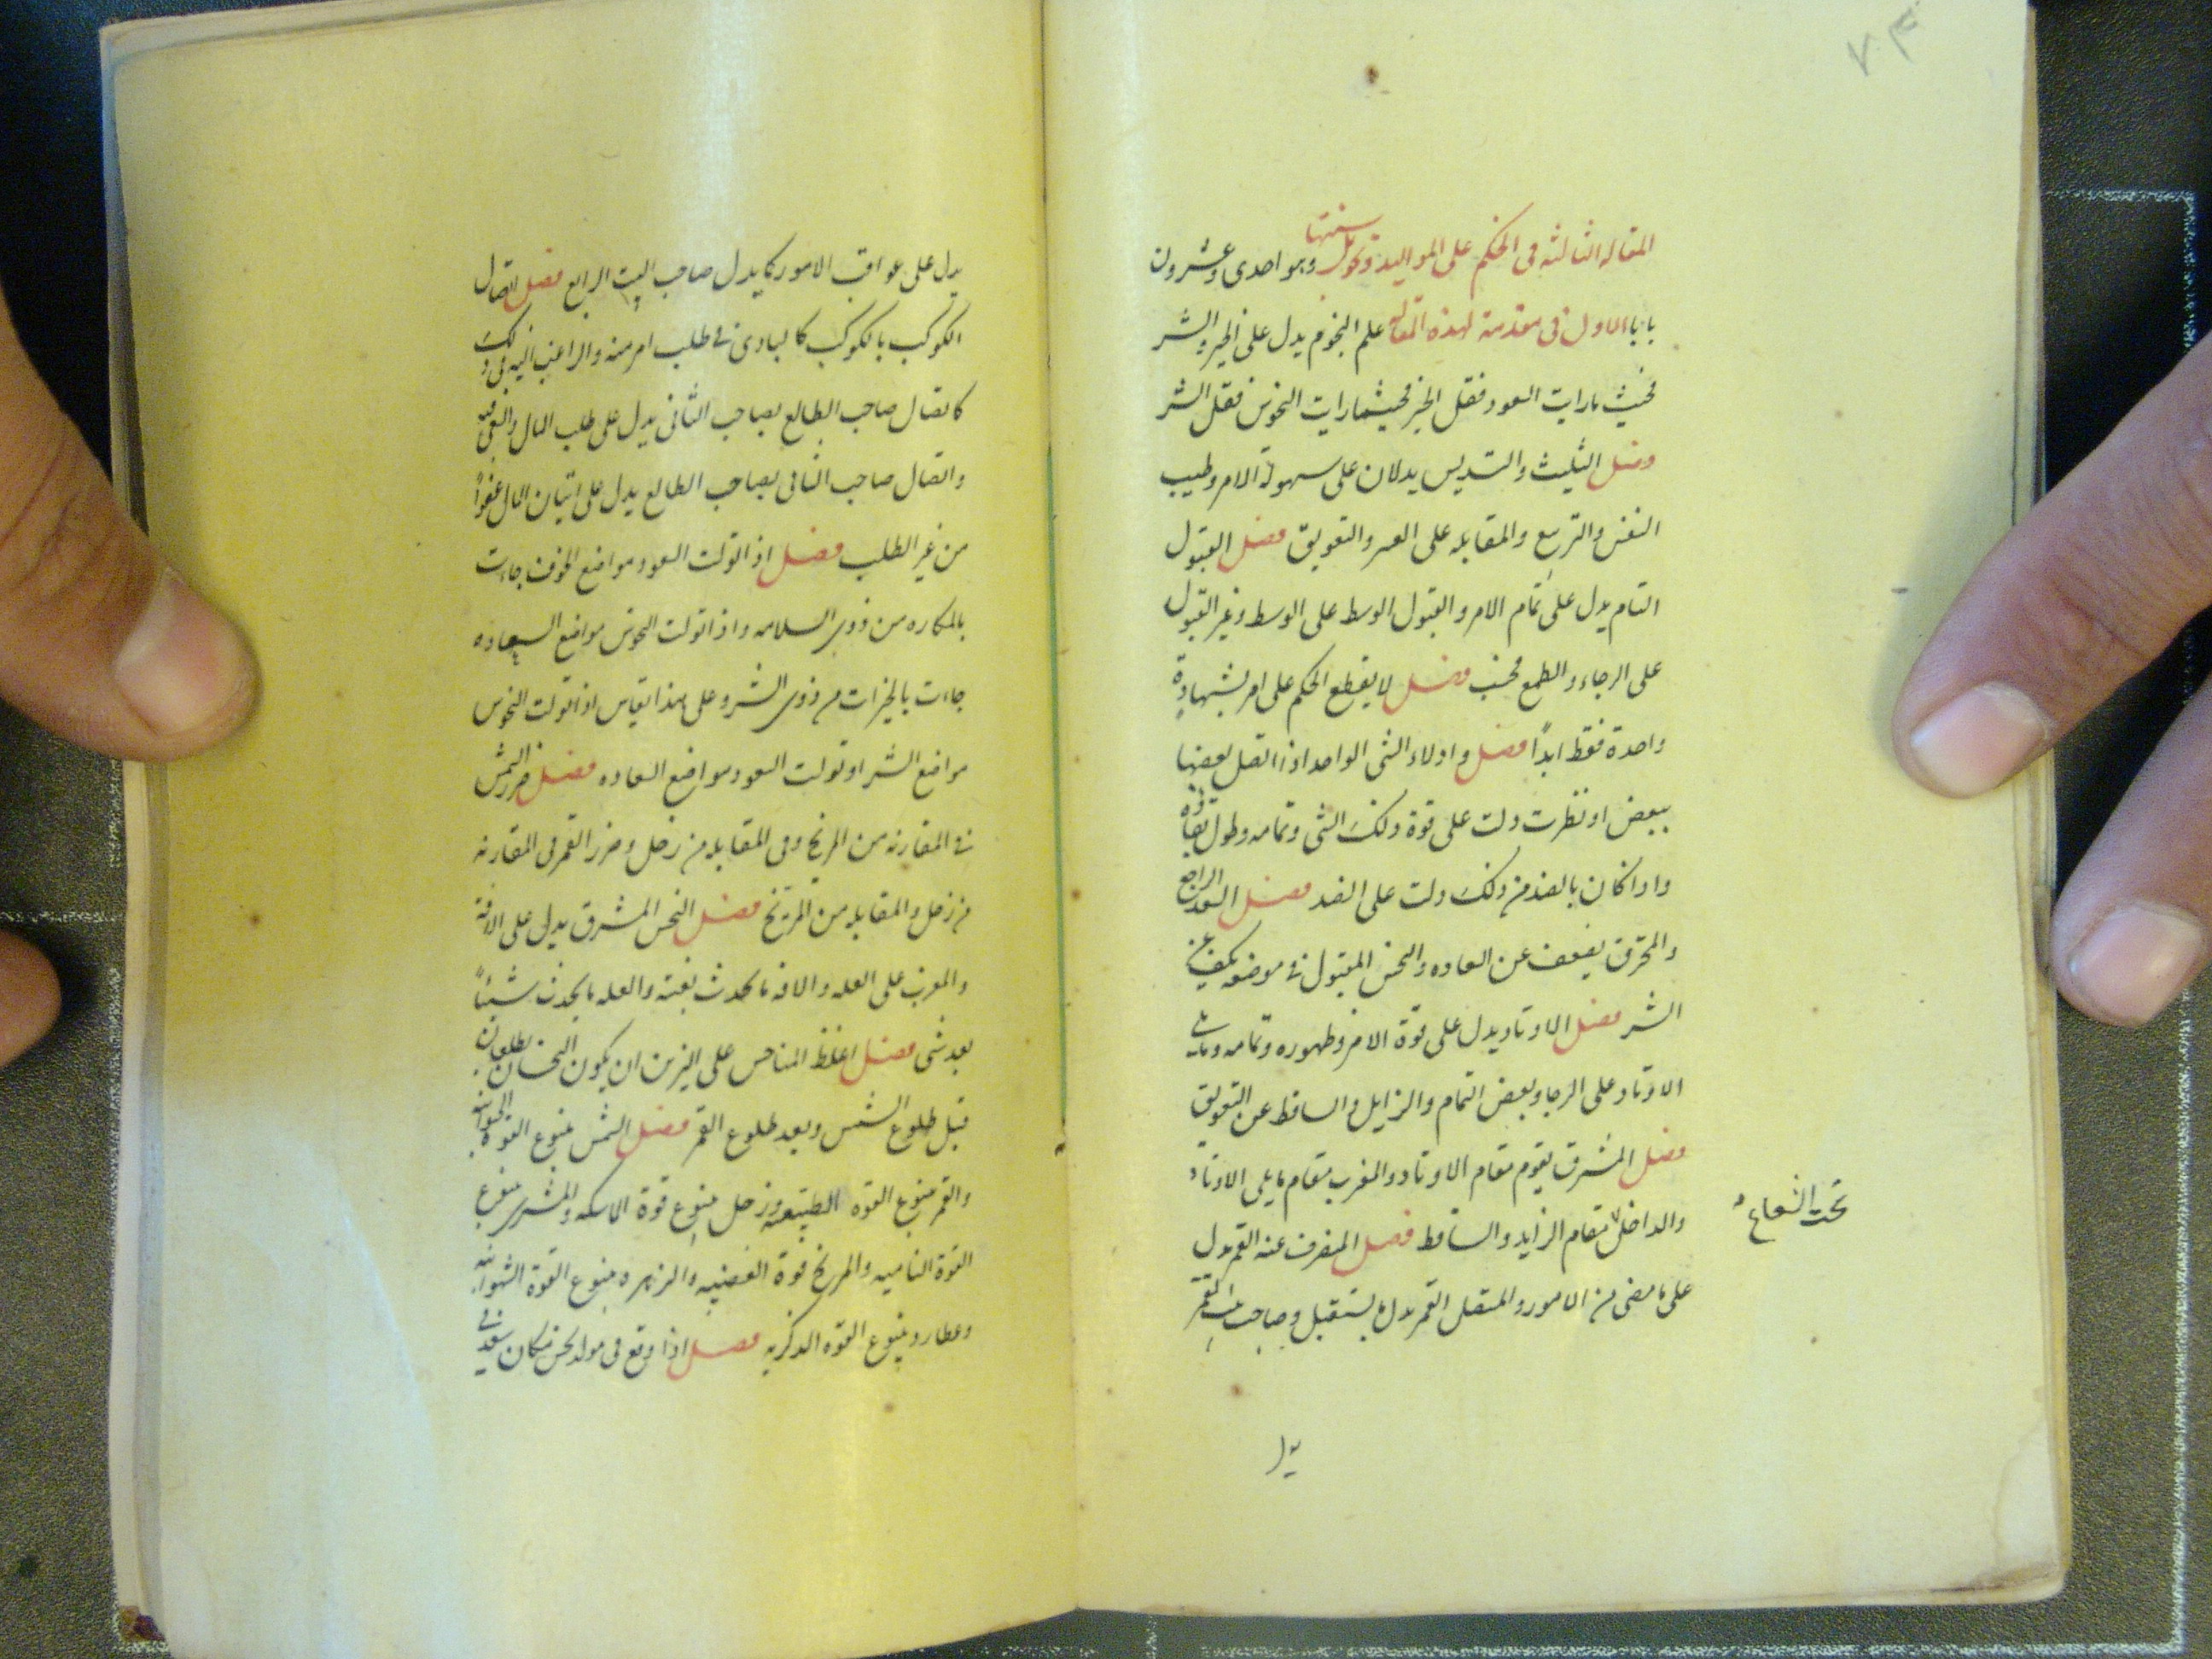 ۷۴
المقاله الثالثه فی الحکم علی الموالید وتحویل سنتها وهو احدی وعشرون
بابا الاول فی مقدمة لهذه المقاله علم النجوم یدل علی الخیر والشر
فحیث مارایت السعود فقل الخیر فحیثما رایت النحوس فقل الشر
فصل التثلیث والتسدیس یدلان علی سهولة الامر وطیب
النفس والتربیع والمقابله علی العسر والتعویق فصل القبول
التام یدل علی تمام الامر والقبول الوسط علی الوسط وغیر القبول
علی الرجاء والطمع فحسب فصل لا یقطع الحکم علی امر بشهادة
واحدة فقط ابدًا فصل وادلاء الشی الواحد اذا اتصل بعضها
ببعض او نظرت دلت علی قوة ذلک الشی وتمامه وطول بقائه
واذا کان بالضد من ذلک دلت علی الضد فصل السعد الراجع
والمحترق یضعف عن السعاده والنحس المقبول فی موضعه یکف عن
الشر فصل الاوتاد یدل علی قوة الامر وظهوره وتمامه وما یلی
الاوتاد علی الرجا وبعض التمام والزایل والساقط عن التعویق
فصل المشرق یقوم مقام الاوتاد والمغرب مقام ما یلی الاوتاد
والداخل مقام الزاید والساقط فصل المنصرف عنه القمر یدل
تحت الشعاع
علی ما مضی من الامور والمتصل القمر یدل ما یستقبل وصاحب بیت القمر
یدل
یدل علی عواقب الامور کما یدل صاحب البیت الرابع فصل اتصال
الکوکب بالکوکب کالبادی فی طلب امر منه والراغب الیه فی ذلک
کاتصال صاحب الطالع بصاحب الثانی یدل علی طلب المال والسعی فیه
واتصال صاحب الثانی بصاحب الطالع یدل علی اتیان المال عفوًا
من غیر الطلب فصل اذا تولت السعود مواضع الخوف جاءت
بالمکاره من ذوی السلامه واذا تولت النحوس مواضع السعاده
جاءت بالخیرات من ذوی الشر وعلی هذا یقاس اذا تولت النحوس
مواضع الشر او تولت السعود مواضع السعاده فصل ضرر الشمس
فی المقارنه من المریخ وفی المقابله من زحل وضرر القمر فی المقارنه
من زحل والمقابله من المریخ فصل النحس المشرق یدل علی الافة
والمغرب علی العله والافه ما یحدث بغتة والعله ما یحدث شیئًا
بعد شی فصل اغلظ المناحس علی النیرین ان یکون النحسان یطلعان
قبل طلوع الشمس وبعد طلوع القمر فصل الشمس ینبوع القوة الحیوانیه
والقمر ینبوع القوه الطبیعیه وزحل ینبوع قوة الماسکه والمشتری ینبوع
القوة النامیه والمریخ قوة الغضبیه والزهره ینبوع القوة الشهوانیه
وعطارد ینبوع القوه الذکریه فصل اذا وقع فی مولد نحس مکان سعد فی